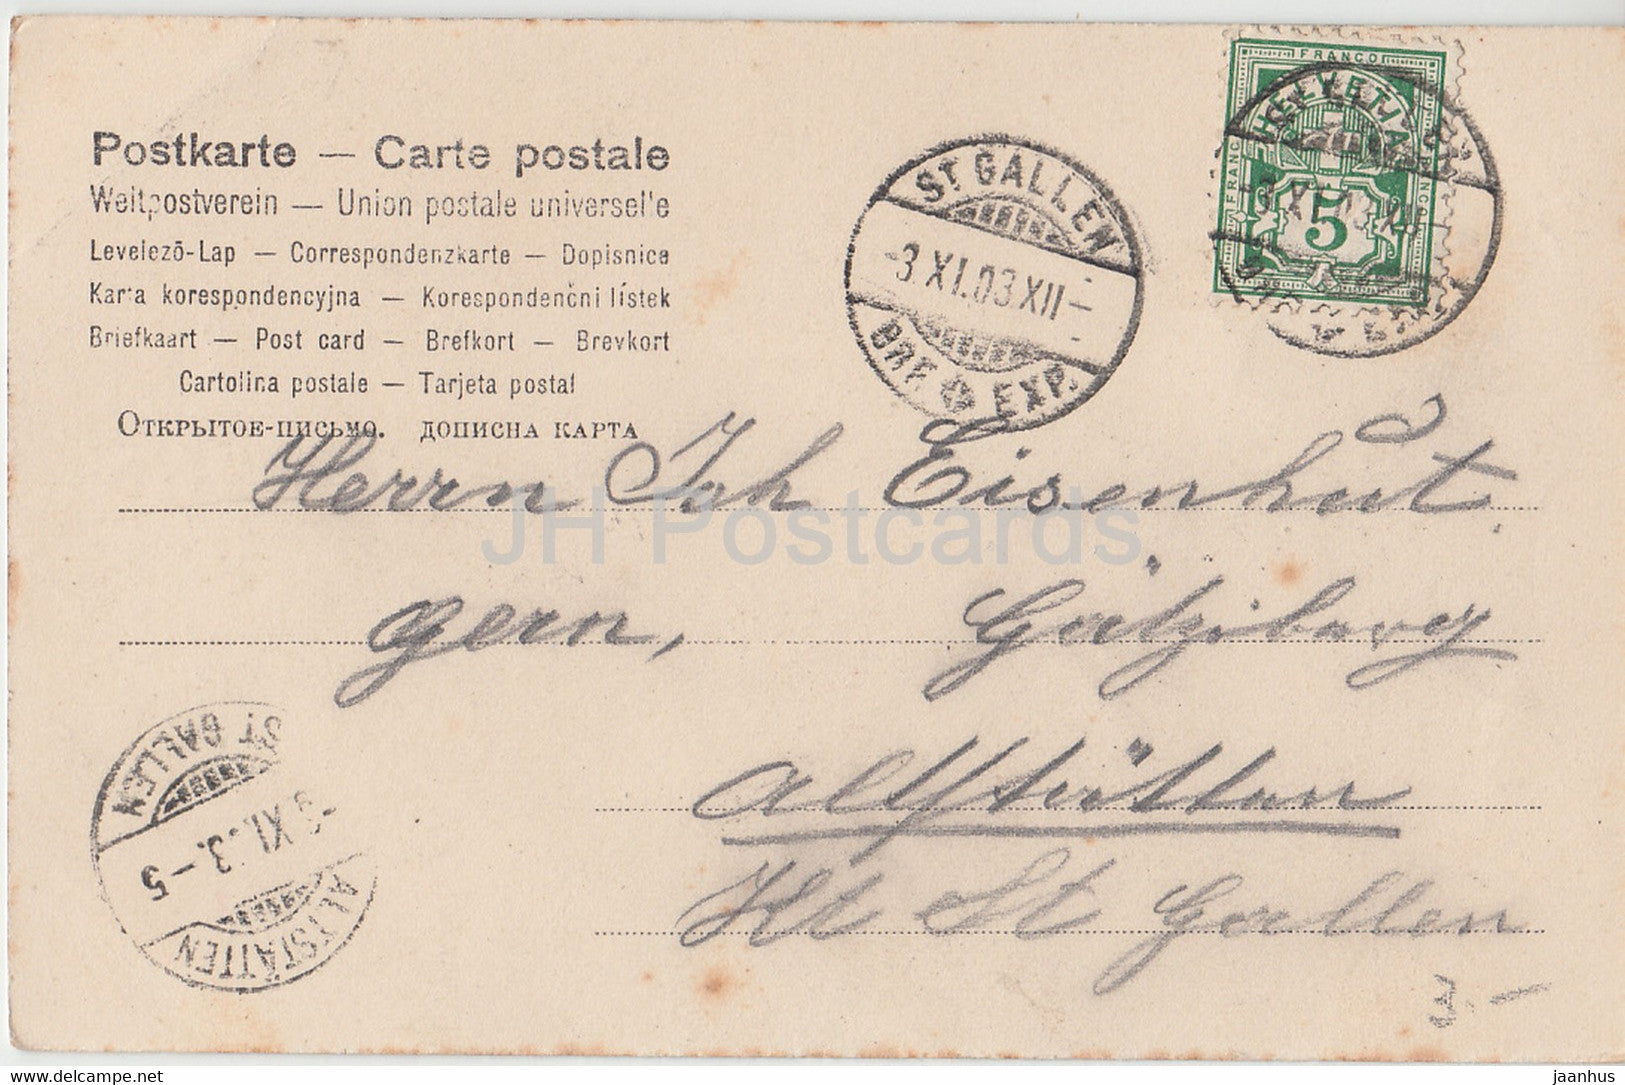 Postkarte — Carte postale
Weltpostverein — Union postale universel'e
Levelező-Lap — Correspondenzkarte — Dopisnice
Karta korespondencyjna — Korespondenční lístek
Briefkaart — Post card — Brefkort — Brevkort
Cartolina postale — Tarjeta postal
Открытое-письмо. дописна карта
FRANCO
HELVETIA
FRANCO
FRANCO
5
-3.XI.03 XII-
ST GALLEN
-3.XI.03 XII-
BRF. EXP.
Herrn Joh Eisenhut
JH Postcards
Gern, Gätziberg
Altstätten
Kt St Gallen
ST GALLEN
XI. 3.-5
ALTSTÄTTEN
3.-
www.delcampe.net
jaanhus